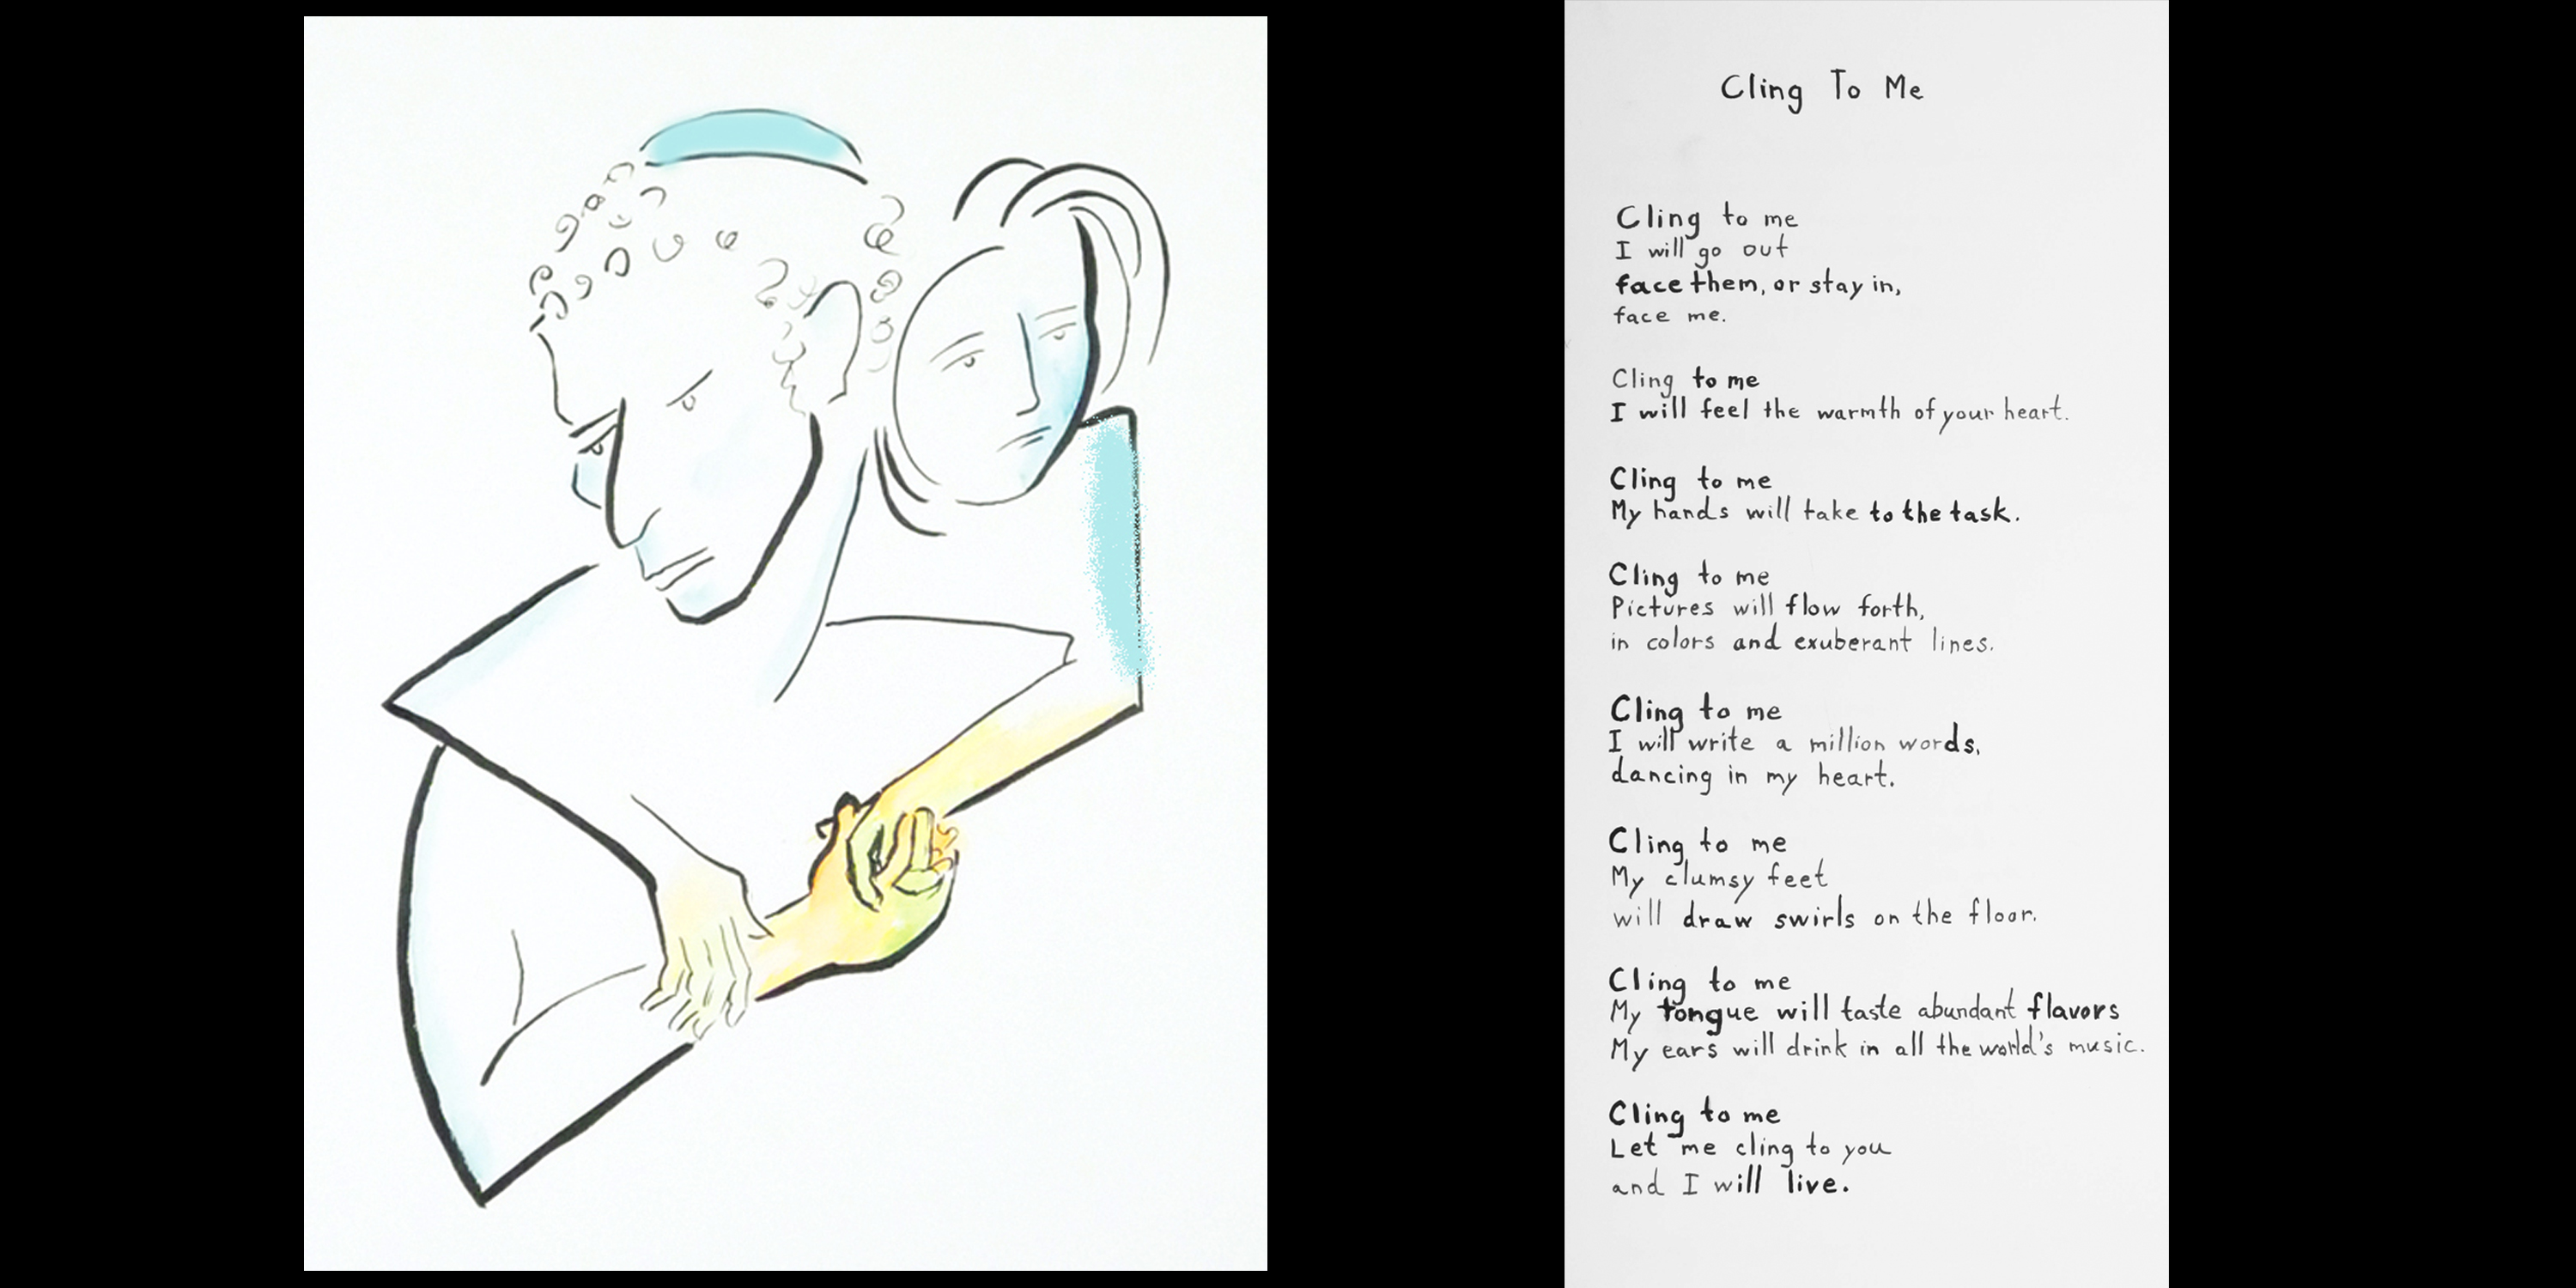 Cling To Me
Cling to me
I will go out
face them, or stay in,
face me.
Cling to me
I will feel the warmth of your heart.
Cling to me
My hands will take to the task.
Cling to me
Pictures will flow forth,
in colors and exuberant lines.
Cling to me
I will write a million words,
dancing in my heart.
Cling to me
My clumsy feet
will draw swirls on the floor.
Cling to me
My tongue will taste abundant flavors
My ears will drink in all the world's music.
Cling to me
Let me cling to you
and I will live.